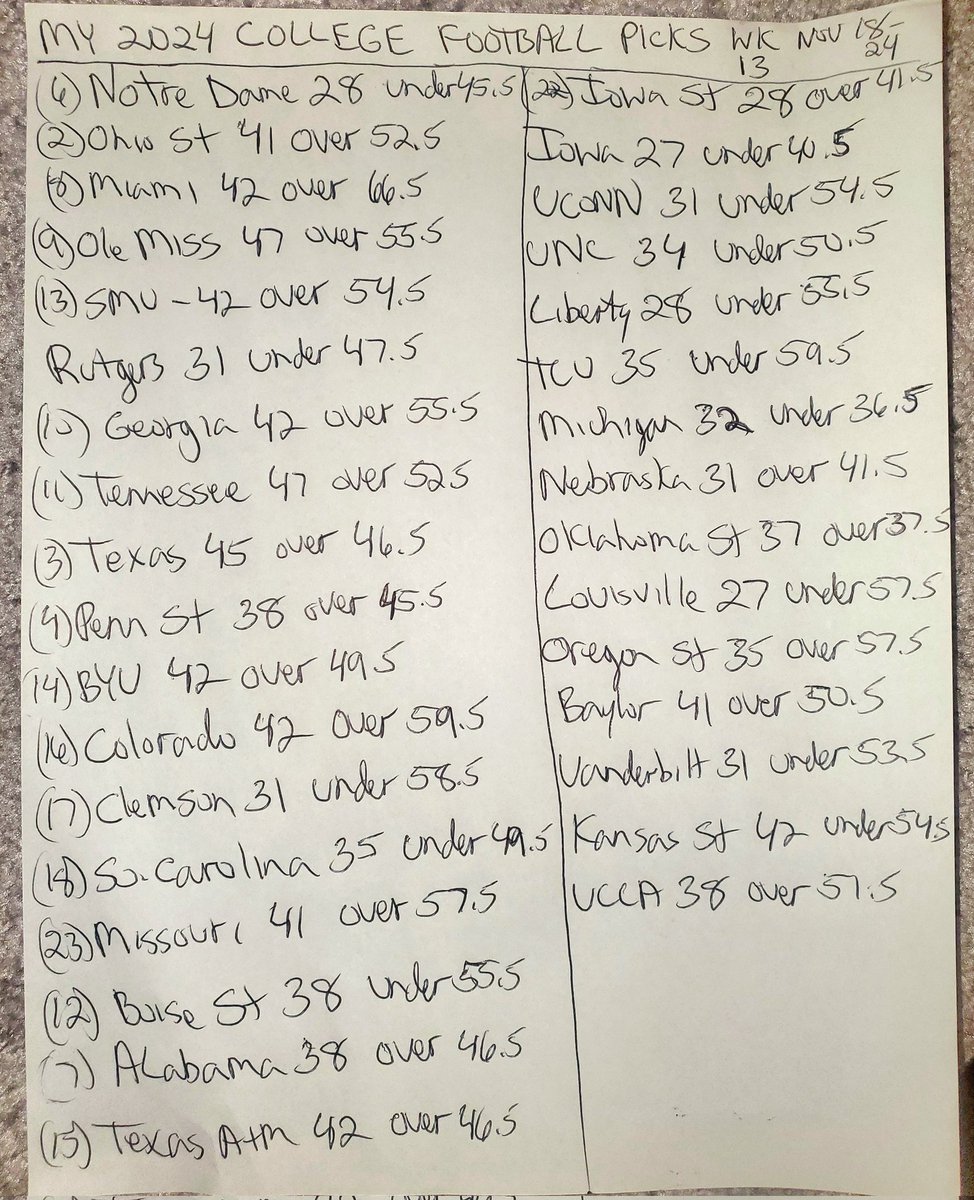 MY 2024 COLLEGE FOOTBALL PICKS WK 13 NOV 18-24
(6) Notre Dame 28 under 45.5
(2) Ohio St 41 over 52.5
(8) Miami 42 over 66.5
(9) Ole Miss 47 over 55.5
(13) SMU - 42 over 54.5
Rutgers 31 under 47.5
(10) Georgia 42 over 55.5
(11) Tennessee 47 over 52.5
(3) Texas 45 over 46.5
(4) Penn St 38 over 45.5
(14) BYU 42 over 49.5
(16) Colorado 42 over 59.5
(17) Clemson 31 under 58.5
(18) So. Carolina 35 under 49.5
(23) Missouri 41 over 57.5
(12) Boise St 38 under 55.5
(7) Alabama 38 over 46.5
(15) Texas A+M 42 over 46.5
(22) Iowa St 28 over 41.5
Iowa 27 under 40.5
UCONN 31 under 54.5
UNC 34 under 50.5
Liberty 28 under 55.5
TCU 35 under 59.5
Michigan 32 under 36.5
Nebraska 31 over 41.5
Oklahoma St 37 over 37.5
Louisville 27 under 57.5
Oregon St 35 over 57.5
Baylor 41 over 50.5
Vanderbilt 31 under 53.5
Kansas St 42 under 54.5
UCLA 38 over 51.5